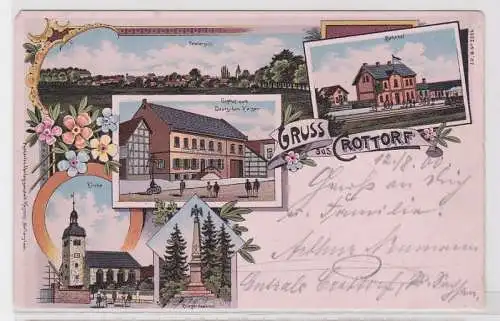 Totalansicht
Bahnhof
Gasthof zum
Deutschen Kaiser
GRUSS
aus CROTTORF
Kirche
Kriegerdenkmal
12/8. 00
Gruss an Dich
u. Familie!
Arthur Neumann
Centrale Crottorf Pr. Sachsen